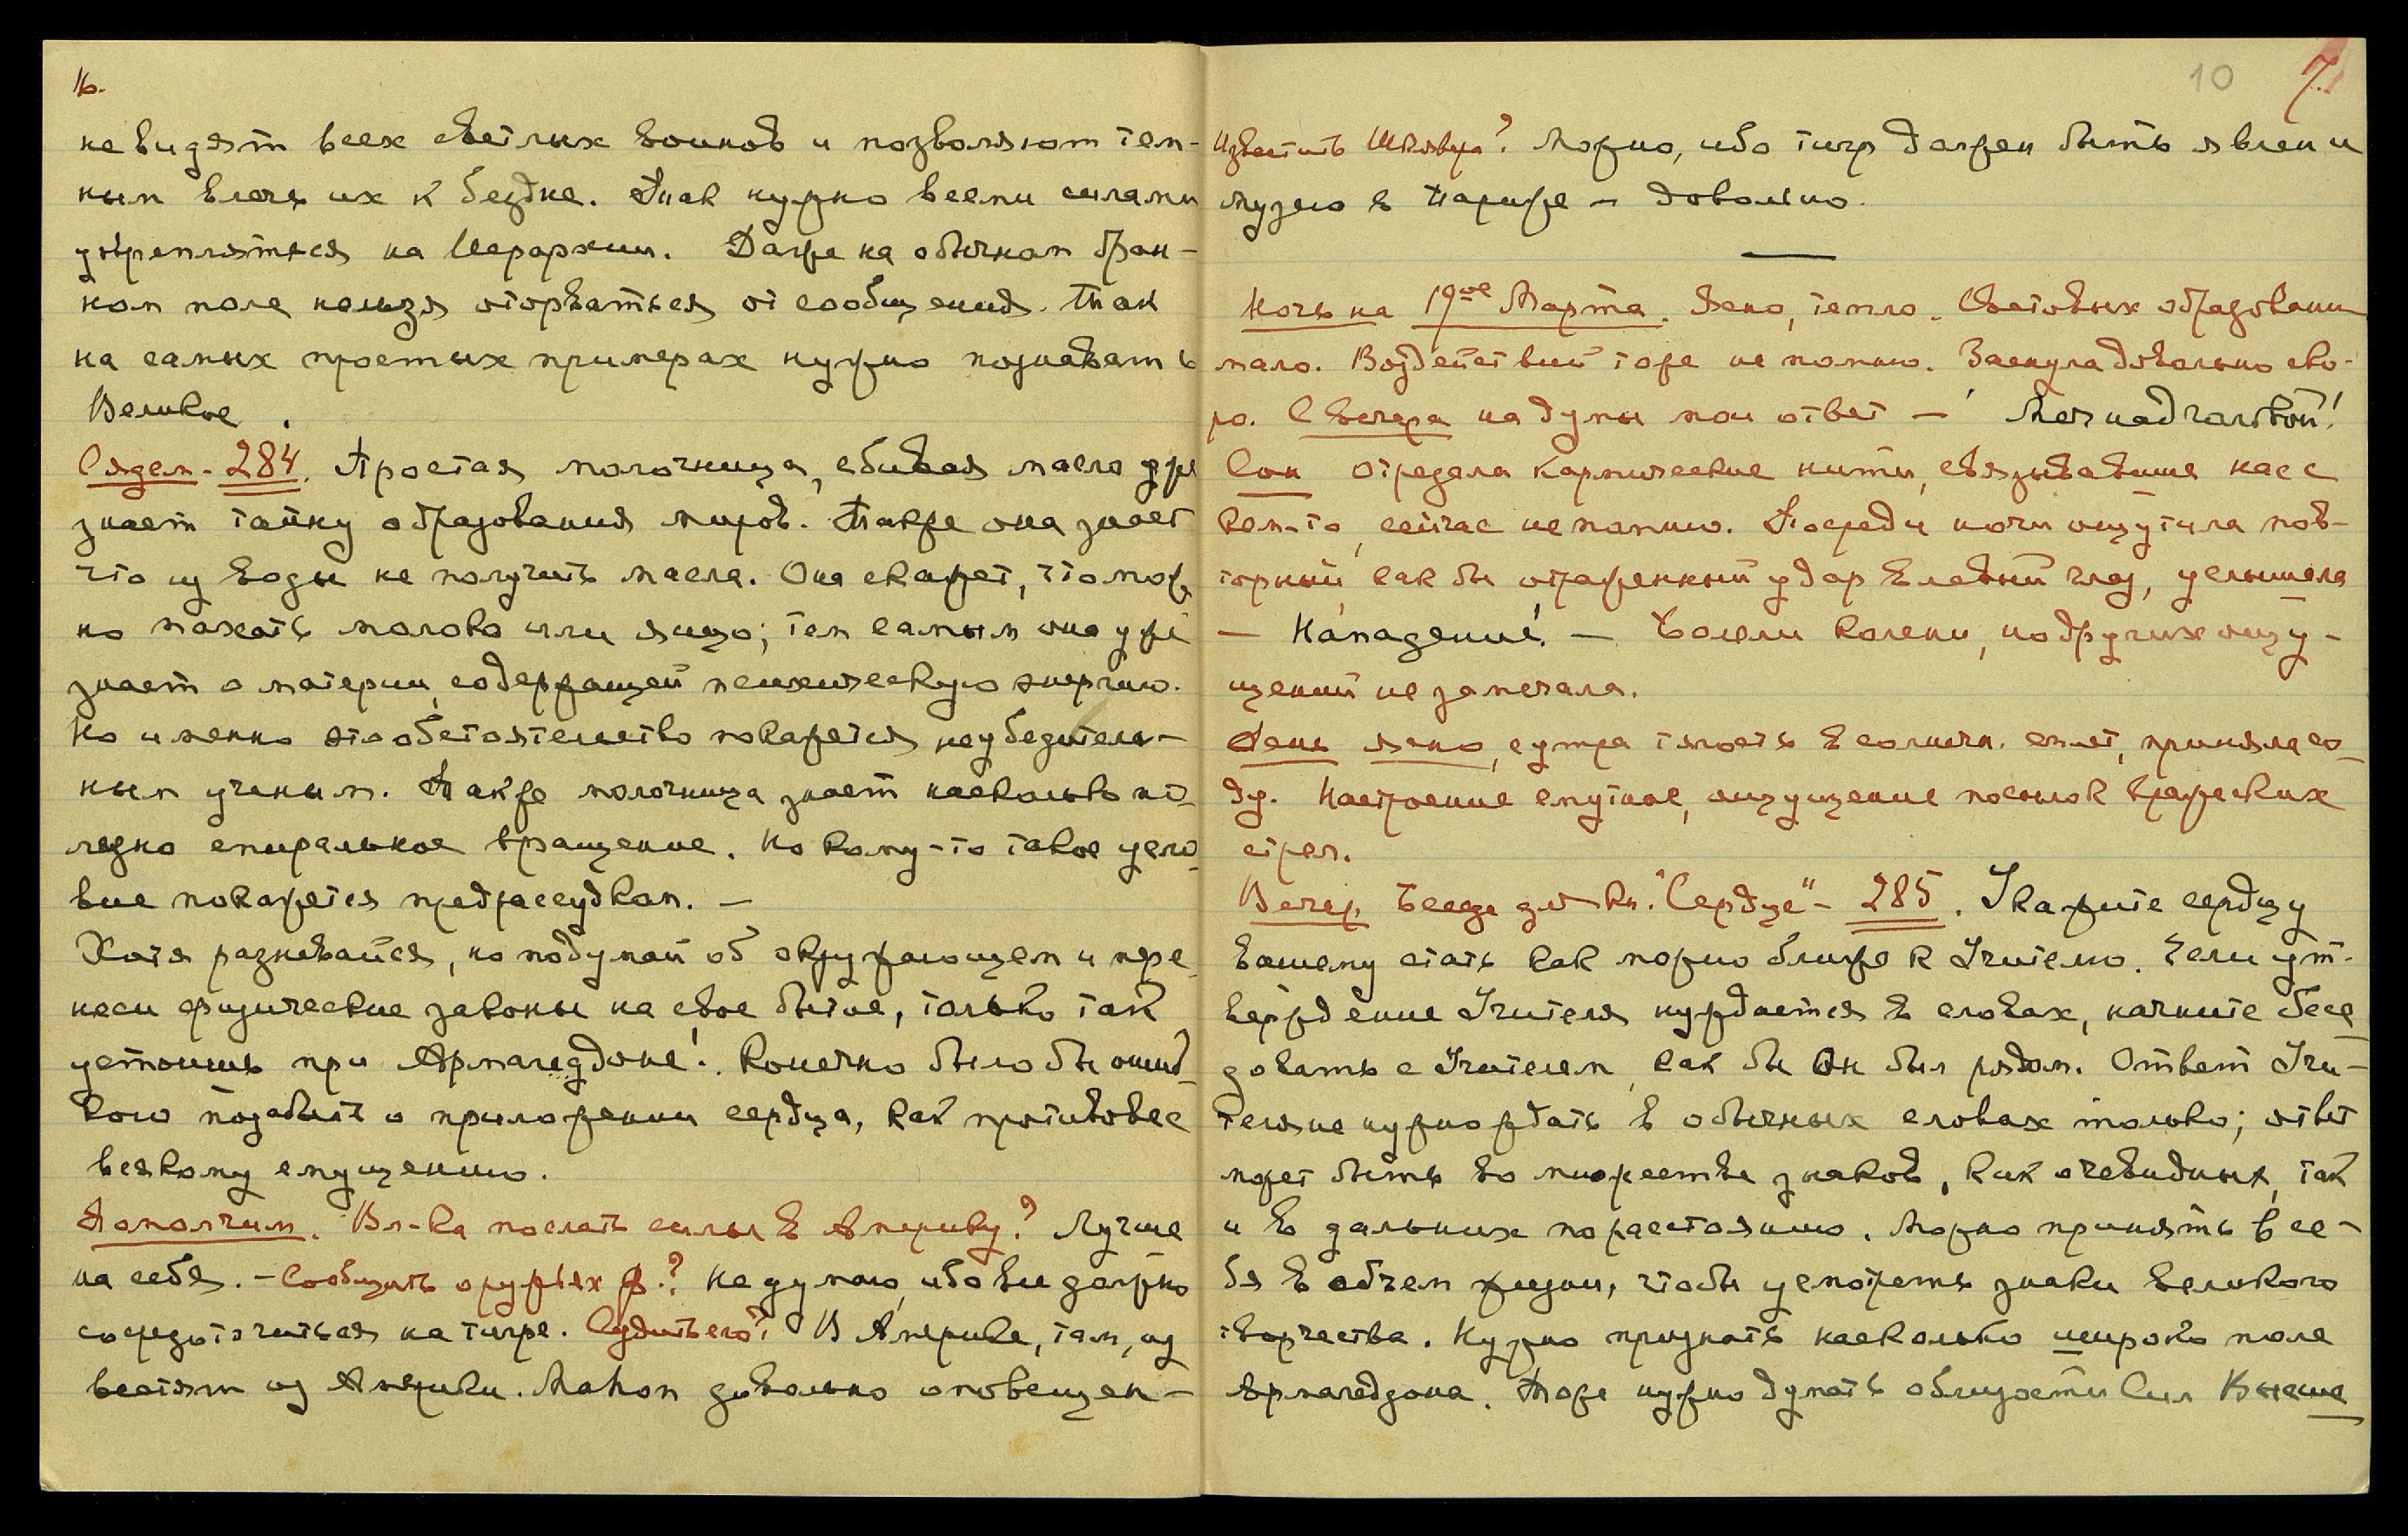 16.
не видят всех светлых воинов и позволяют тем-
ным влечь их к бездне. Так нужно всеми силами
укрепляться на Иерархии. Даже на обычном бран-
ном поле нельзя оторваться от сообщения. Так
на самых простых примерах нужно познавать
Великое.
Сядем - 284. Простая молочница, сбивая масло уже
знает тайну образования миров. Также она знает
что из воды не получить масла. Она скажет, что мож
но пахать молоко или яйцо; тем самым она уже
знает о материи, содержащей психическую энергию.
Но именно это обстоятельство покажется неубедитель-
ным ученым. Также молочница знает насколько по-
лезно спиральное вращение. Но кому-то такое усло-
вие покажется предрассудком. —
Хотя разневайся, но подумай об окружающем и пере-
неси физические законы на свое бытие, только так
устоишь при Армагеддоне! Конечно было бы ошиб-
кою позабыть о приложении сердца, как противовес
всякому смущению.
Помолчим. Вл-ка послать силы в Америку? Лучше
на себя. - Сообщить о ружьях ф.? Не думаю, ибо все должно
сосредоточиться на тигре. Судить его? В Америке, там, из
вестят из Америки. Махон довольно оповещен -
10
7.
Известить Шклявера? Можно, ибо тигр должен быть явлен и
Музею в Париже — довольно.
Ночь на 19ое Марта. Ясно, тепло. Световых образовани
мало. Воздействий тоже не помню. Заснула довольно ско-
ро. С вечера на думы мои ответ — Меч над головой!
Сон отрезала кармические нити, связывавшие нас с
кем-то, сейчас не помню. Посреди ночи ощутила пов-
торный, как бы отраженный удар в левый глаз, услышала
— Нападение! — Болели колени, но других ощу-
щений не замечала.
День ясно, с утра тягость в солнечн. сплет, приняла со-
ду. Настроение смутное, ощущение посылок вражеских
стрел.
Вечер Беседы для кн. "Сердце" - 285. Укажите сердцу
Вашему стать как можно ближе к Учителю. Если ут-
верждение Учителя нуждается в словах, начните бесе
довать с Учителем, как бы Он был рядом. Ответ Учи-
теля не нужно ждать в обычных словах только; ответ
может быть во множестве знаков, как очевидных, так
и в дальних по расстоянию. Можно принять в се-
бя в объем жизни, чтобы усмотреть знаки великого
творчества. Нужно признать насколько широко поле
Армагеддона. Тоже нужно думать о близости Сил Высше